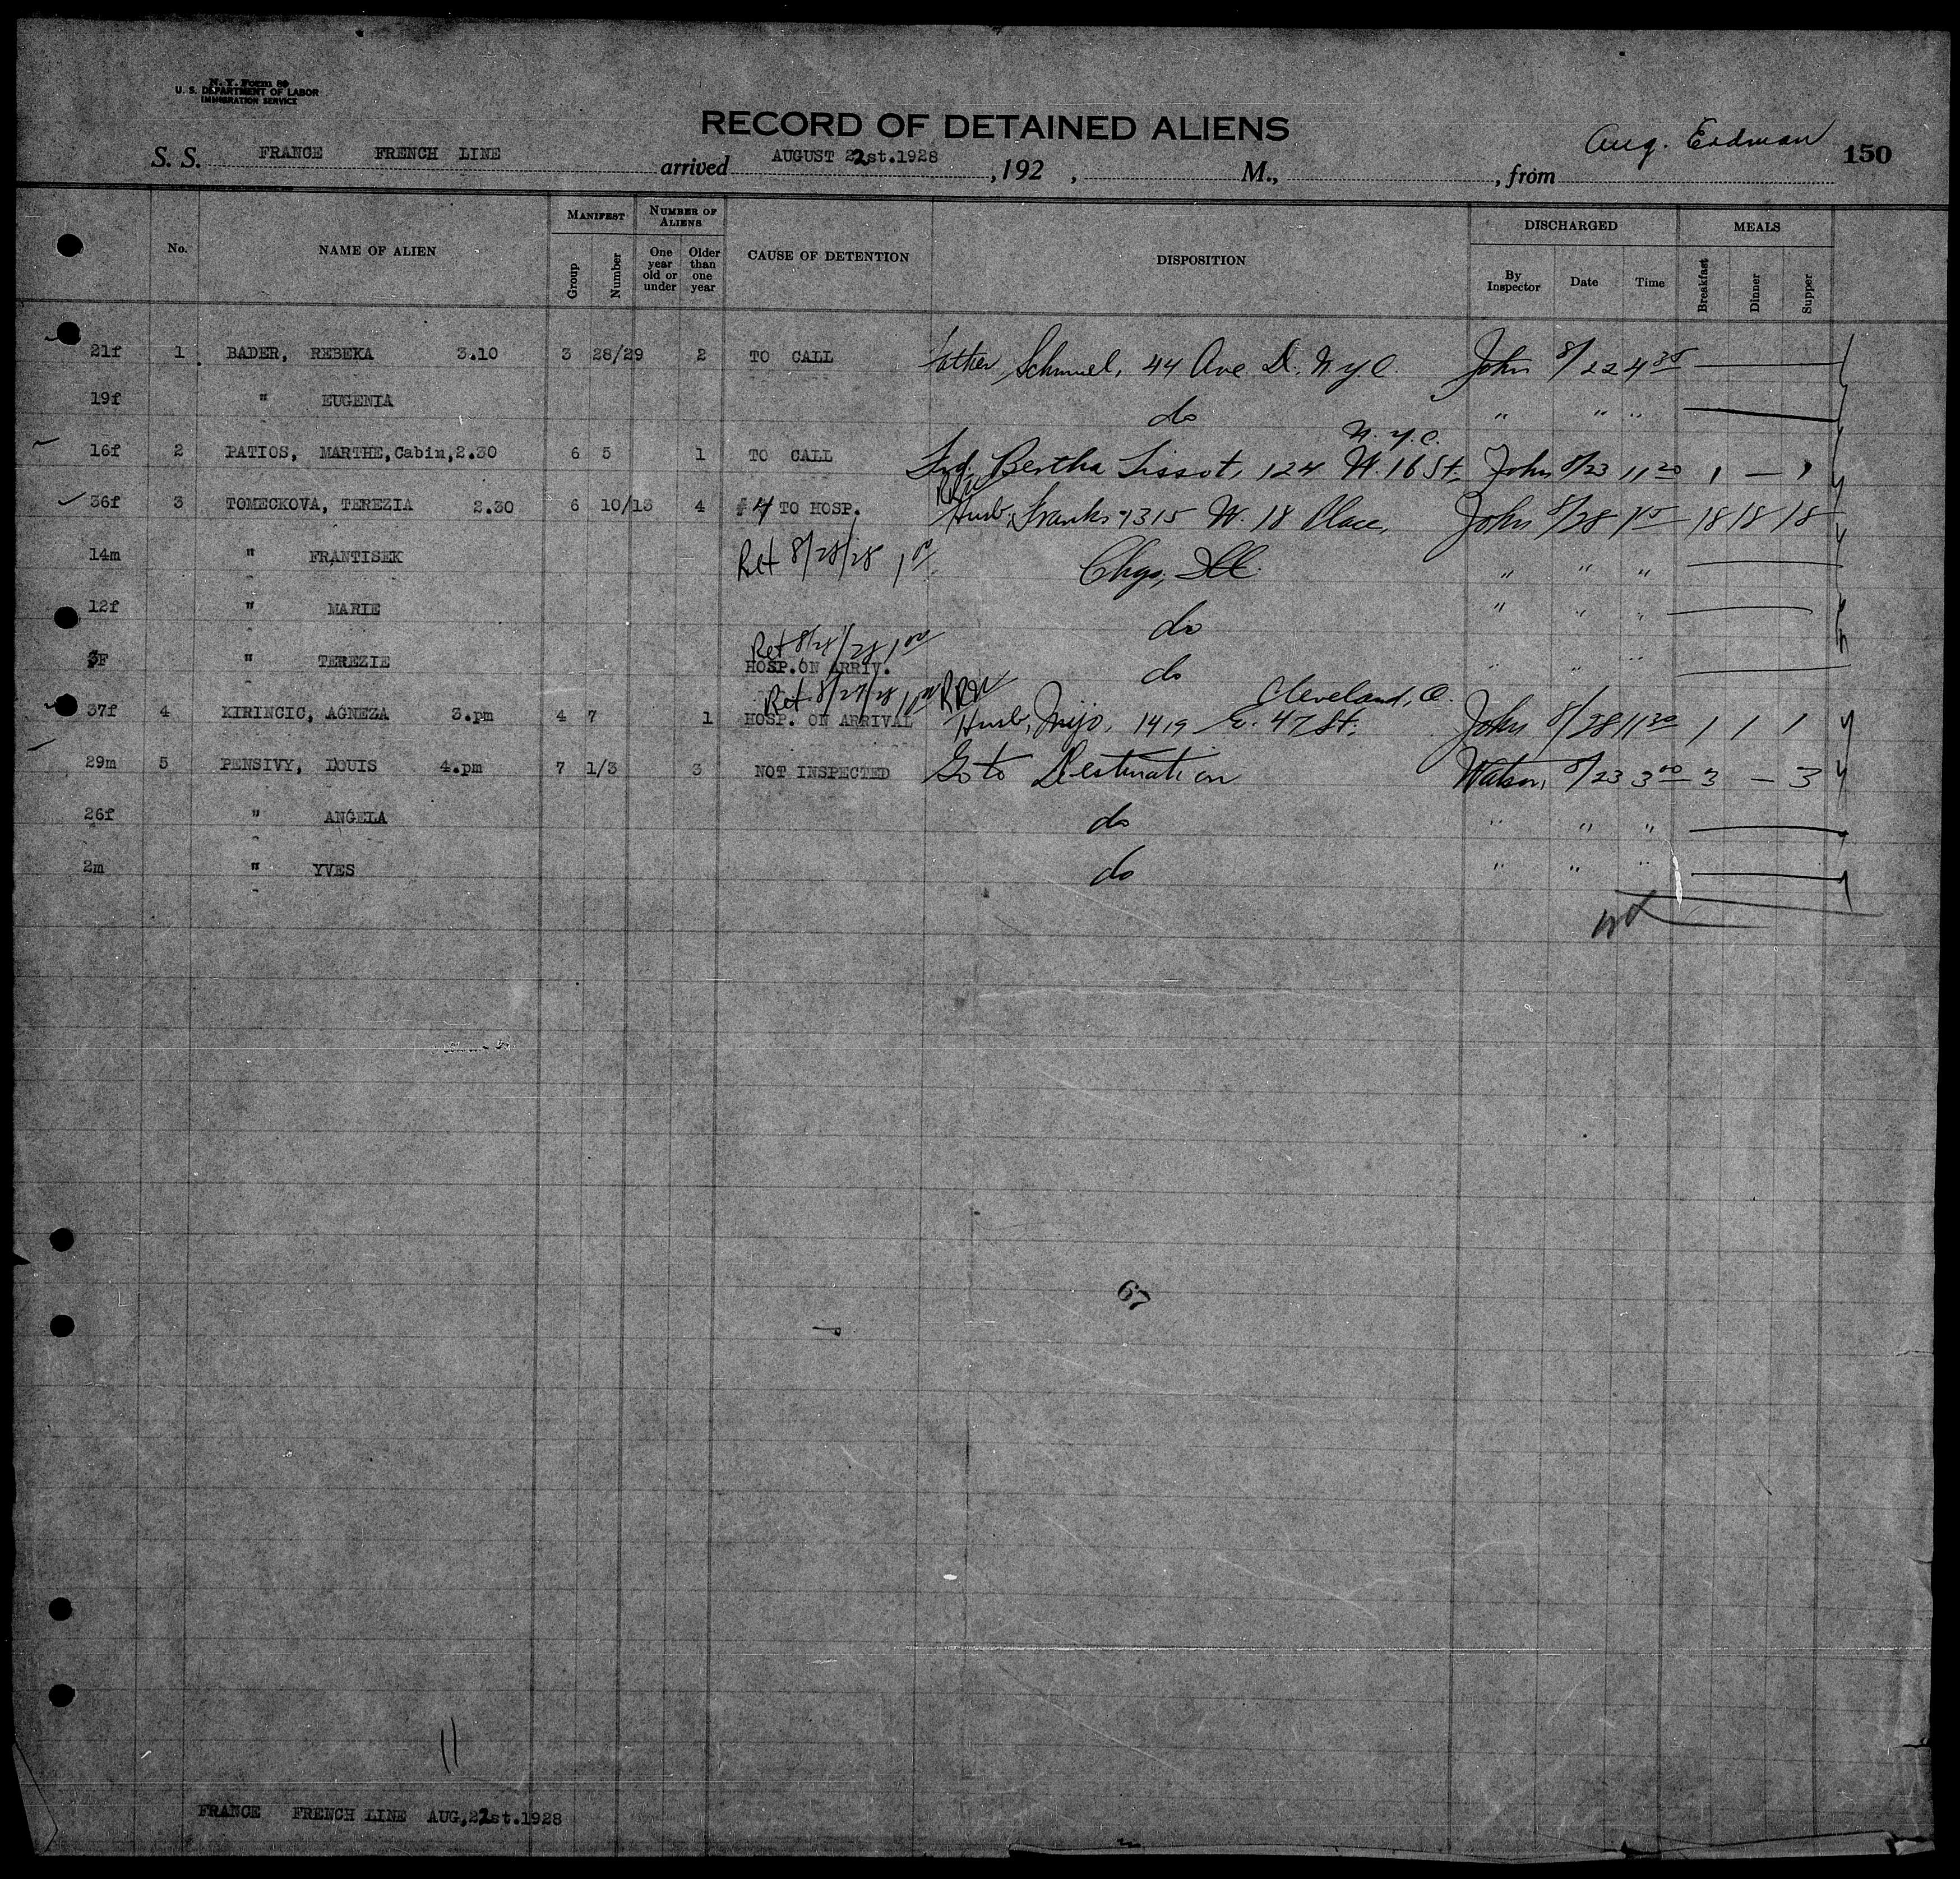 N. Y. Form 89
U. S. DEPARTMENT OF LABOR
IMMIGRATION SERVICE
RECORD OF DETAINED ALIENS
Aug. Erdman 150
S. S. FRANCE FRENCH LINE arrived AUGUST 22st.1928 , 192 , M., , from
No. NAME OF ALIEN MANIFEST Group Number NUMBER OF ALIENS One year old or under Older than one year CAUSE OF DETENTION DISPOSITION DISCHARGED By Inspector Date Time MEALS Breakfast Dinner Supper
21f 1 BADER, REBEKA 3.10 3 28/29 2 TO CALL father, Schmuel, 44 Ave D. N.Y.C. John 8/22 4 35
19f " EUGENIA do " " "
N.Y.C.
16f 2 PATIOS, MARTHE,Cabin,2.30 6 5 1 TO CALL Frd. Bertha Tissot, 124 W. 16 St. John 8/23 11 20 1 — 1
36f 3 TOMECKOVA, TEREZIA 2.30 6 10/13 4 #4 TO HOSP. Husb. Frank 1315 W. 18 Place, John 8/28 1 15 18 18 18
14m " FRANTISEK Ret 8/28/28 1 00 Chgo, Ill. " " "
12f " MARIE do " " "
Ret 8/28/28 1 00
3F " TEREZIE HOSP. ON ARRIV. do " " "
Ret 8/27/28 1 00 RRW Cleveland, O.
37f 4 KIRINCIC, AGNEZA 3.pm 4 7 1 HOSP. ON ARRIVAL Husb, Mijo, 1419 E. 47 St. John 8/28 11 30 1 1 1
29m 5 PENSIVY, LOUIS 4.pm 7 1/3 3 NOT INSPECTED Go to Destination Watson 8/23 3 00 3 — 3
26f " ANGELA do " " "
2m " YVES do " " "
67
11
FRANCE FRENCH LINE AUG,22st.1928